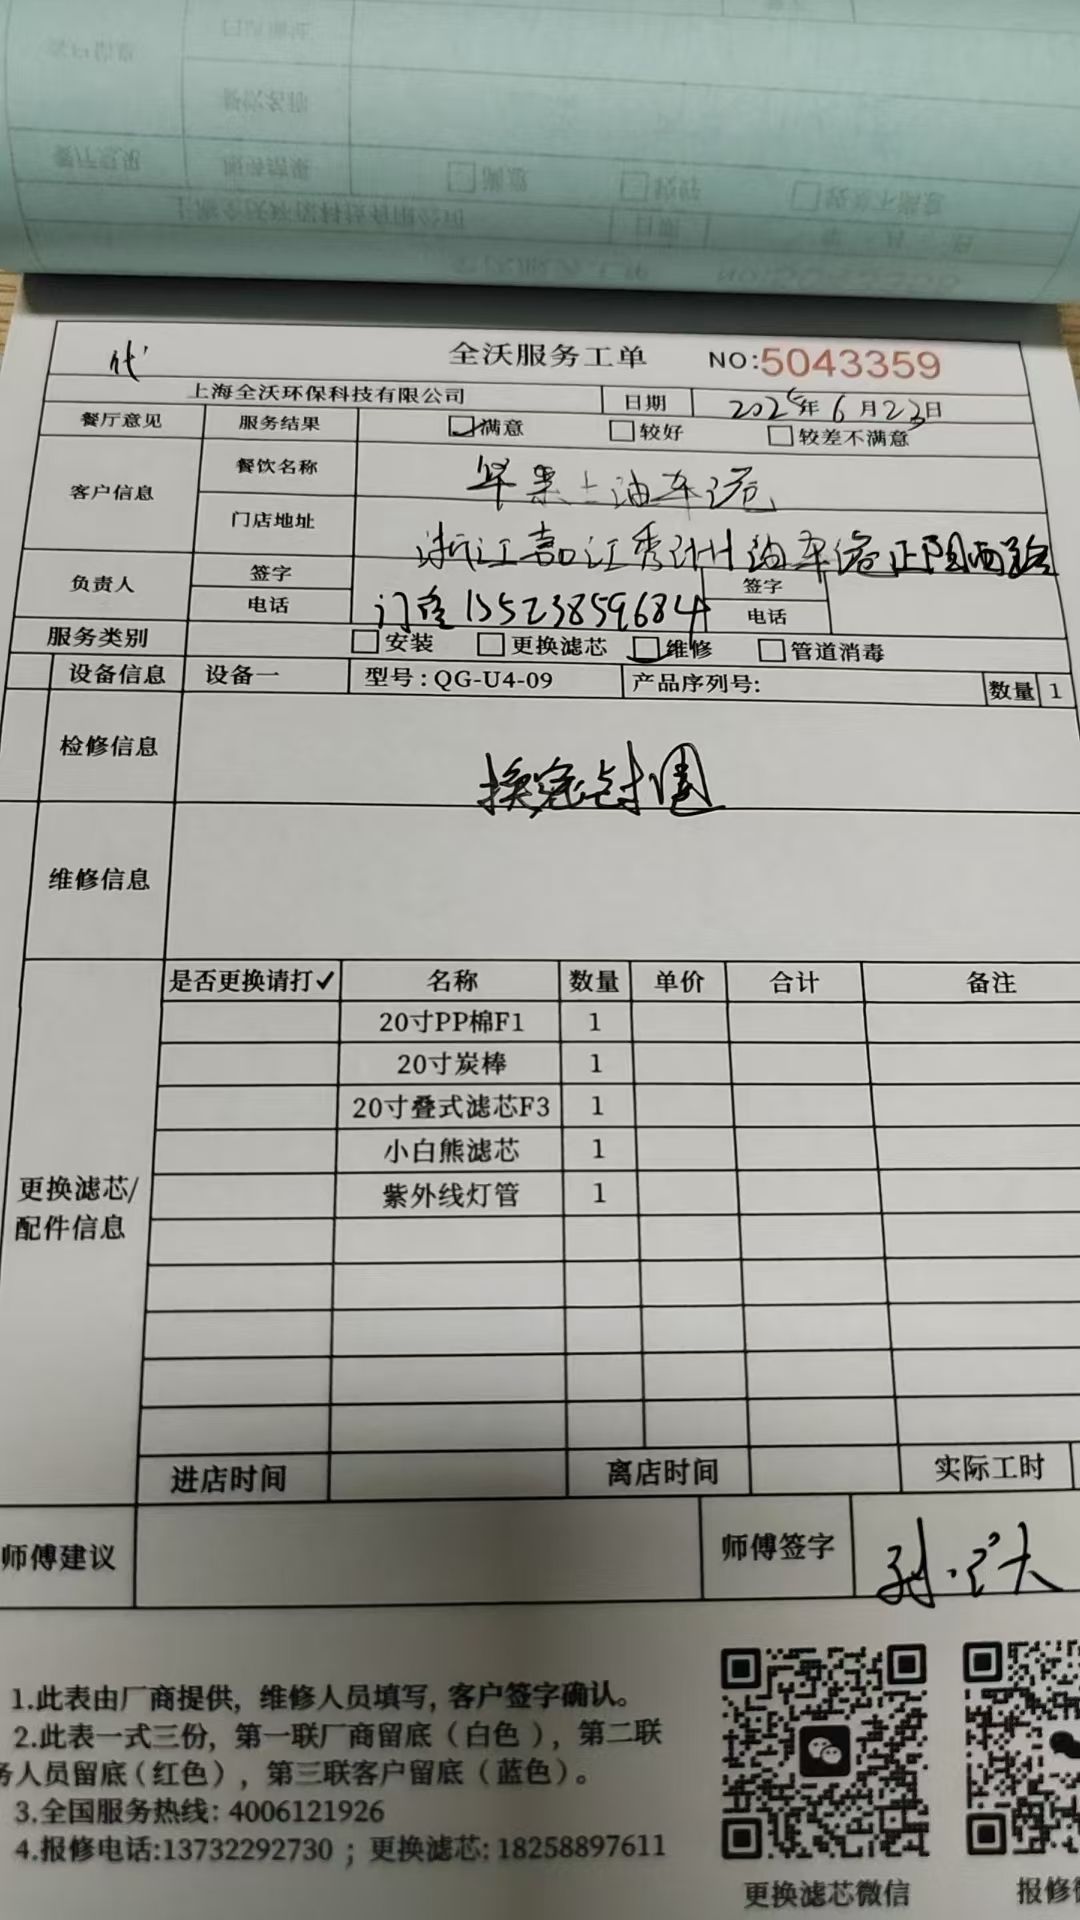 全沃服务工单 NO:5043359
上海全沃环保科技有限公司 日期 2025年6月23日
餐厅意见 服务结果 满意 较好 较差不满意
客户信息 餐饮名称
门店地址 浙江嘉江秀洲油车港正阳西路
负责人 签字 签字
电话 15523859684 电话
服务类别 安装 更换滤芯 维修 管道消毒
设备信息 设备一 型号:QG-U4-09 产品序列号: 数量 1
检修信息 换密封圈
维修信息
是否更换请打✓ 名称 数量 单价 合计 备注
20寸PP棉F1 1
20寸炭棒 1
20寸叠式滤芯F3 1
小白熊滤芯 1
紫外线灯管 1
更换滤芯/
配件信息
进店时间 离店时间 实际工时
师傅建议 师傅签字
1.此表由厂商提供, 维修人员填写, 客户签字确认。
2.此表一式三份, 第一联厂商留底(白色), 第二联
务人员留底(红色), 第三联客户留底(蓝色)。
3.全国服务热线: 4006121926
4.报修电话:13732292730 ; 更换滤芯: 18258897611
更换滤芯微信 报修微